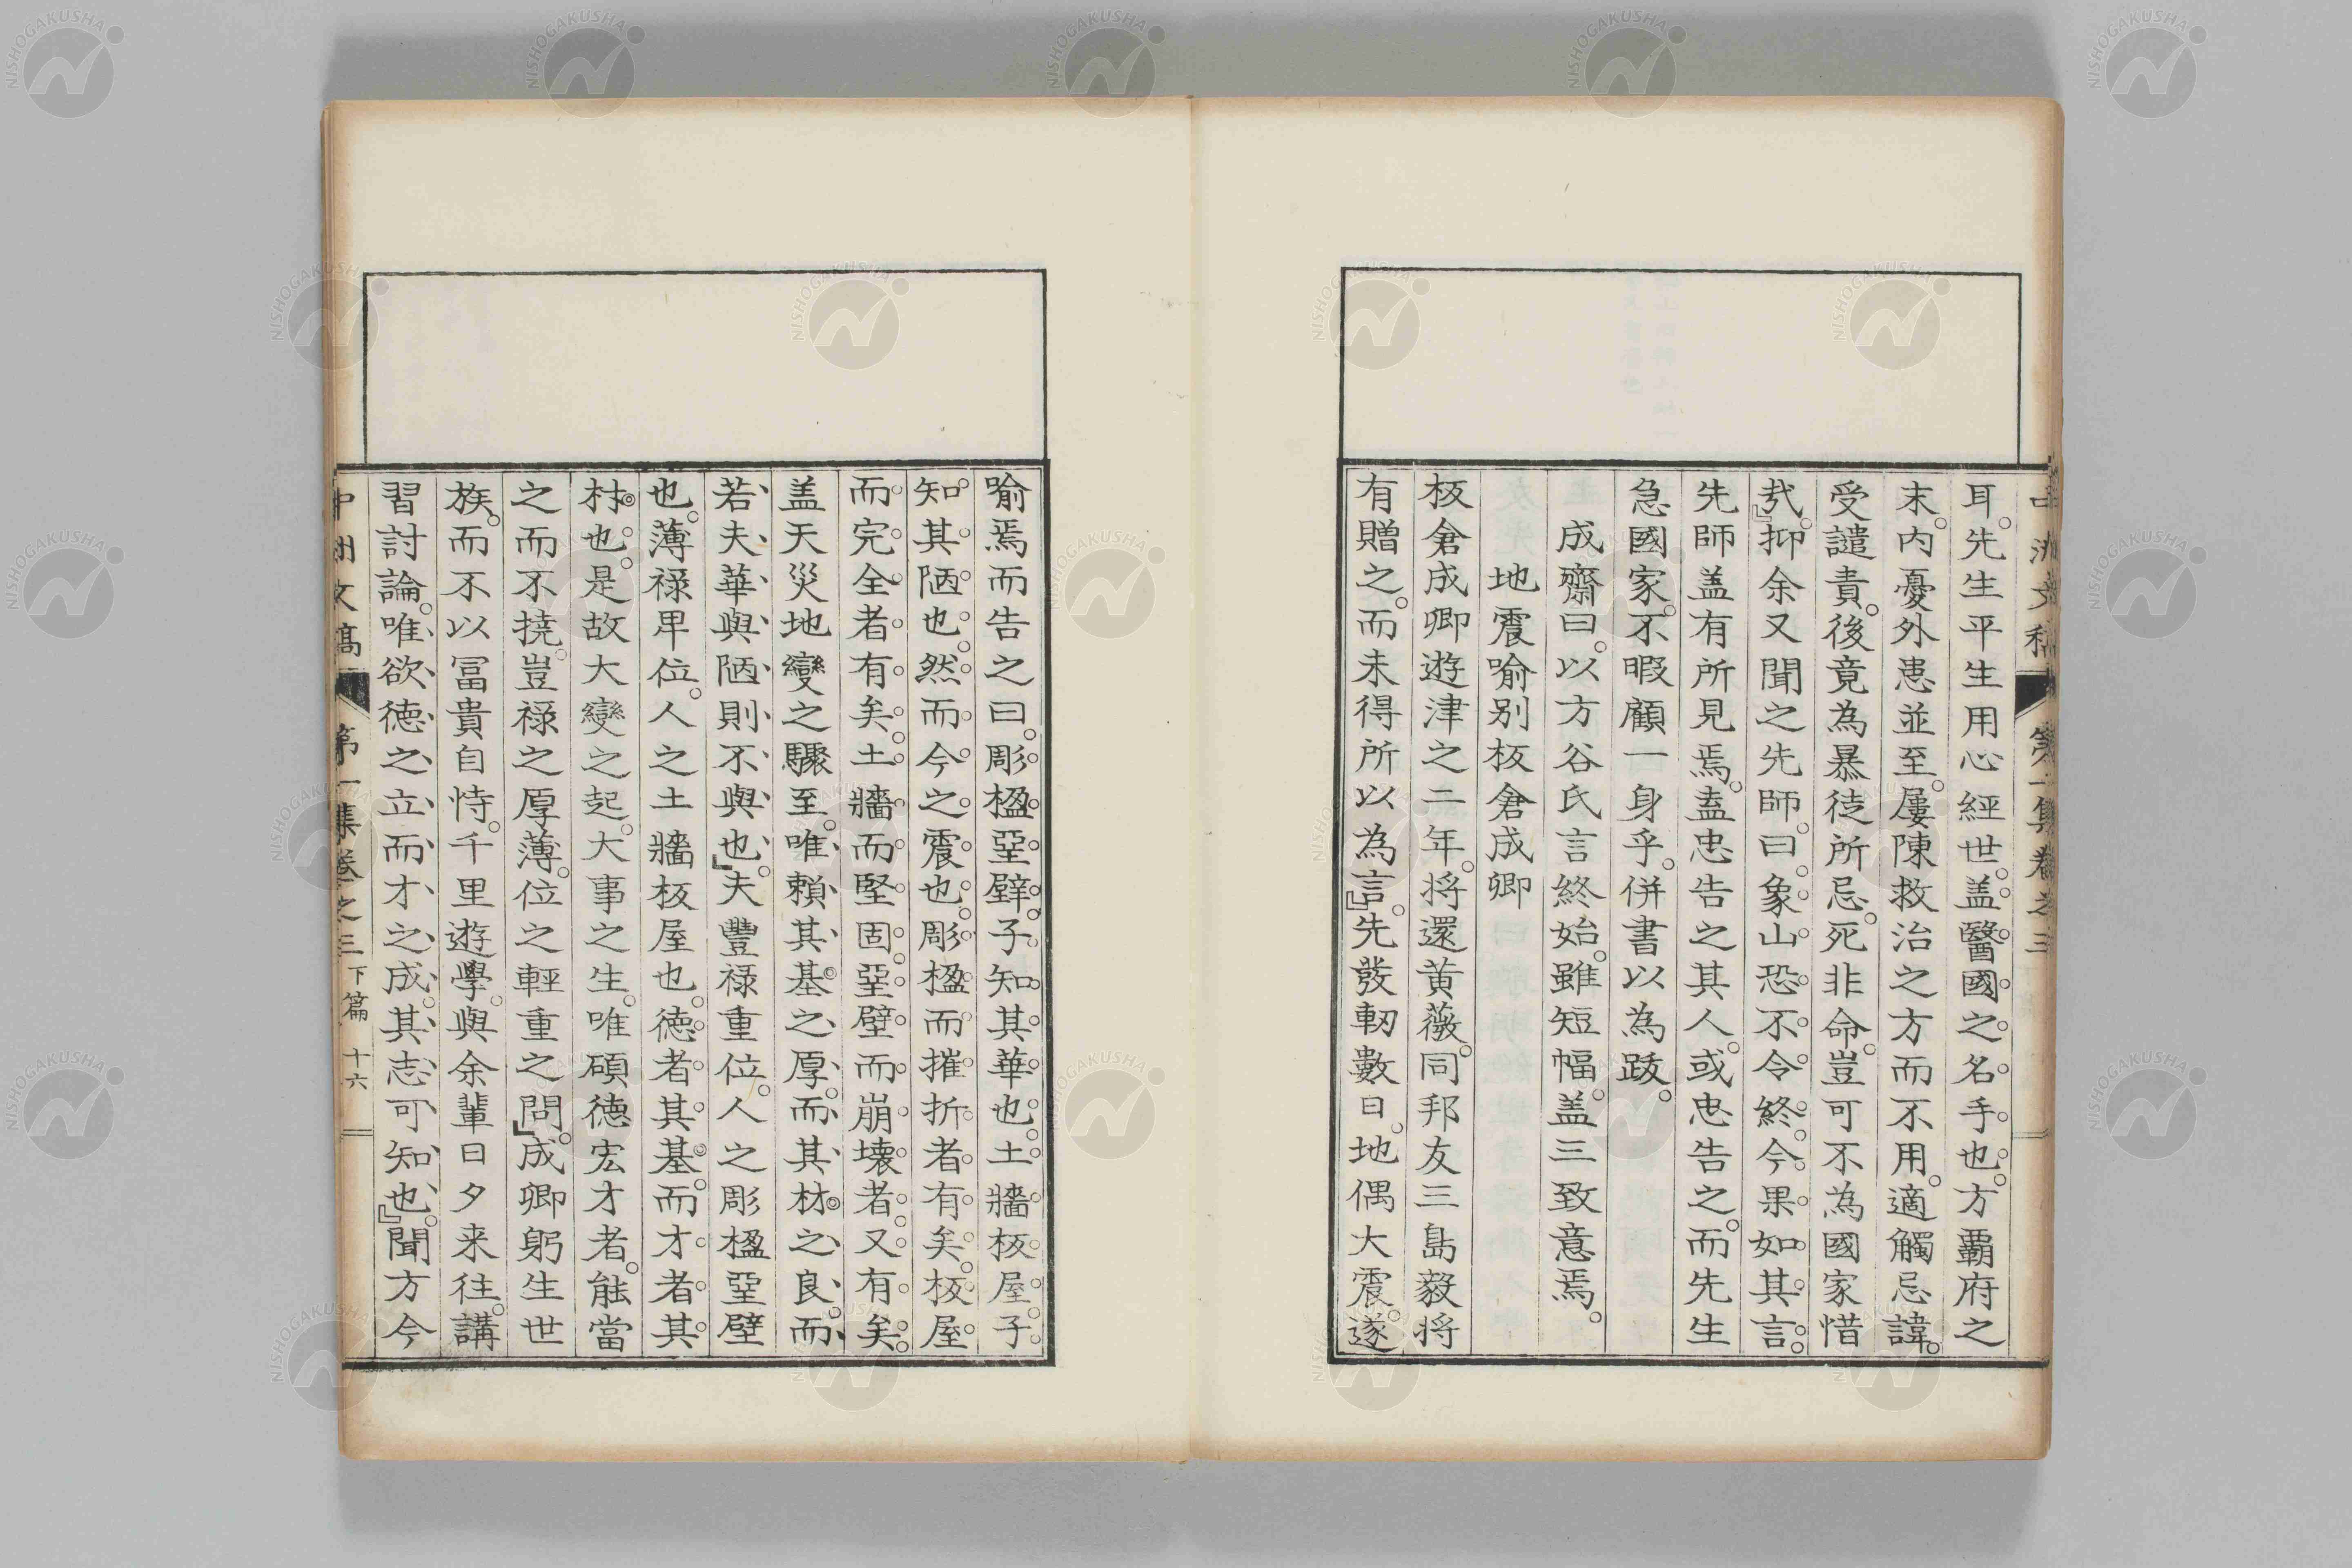 中洲文稿 第一集卷之三
耳。先生平生用心經世。盖醫國之名手也。方覇府之
末。内憂外患並至。屢陳救治之方而不用。適觸忌諱。
受譴責。後竟為暴徒所忌。死非命。豈可不為國家惜
㢤。』抑余又聞之先師。曰。象山恐不令終。今果如其言。
先師盖有所見焉。盍忠告之其人。或忠告之。而先生
急國家。不暇顧一身乎。併書以為跋。
成齋曰。以方谷氏言終始。雖短幅。盖三致意焉。
地震喻別板倉成卿
板倉成卿遊津之二年。将還黄薇。同邦友三島毅将
有贈之。而未得所以為言。』先發軔數日。地偶大震。遂
喻焉而告之曰。彫楹堊壁。子知其華也。土牆板屋。子
知其陋也。然而今之震也。彫楹而摧折者有矣。板屋
而完全者有矣。土牆而堅固。堊壁而崩壊者。又有矣。
盖天災地變之驟至。唯賴其基之厚。而其材之良。而
若夫華與陋則不與也。』夫豐禄重位。人之彫楹堊壁
也。薄禄卑位。人之土牆板屋也。德者其基。而才者其
材也。是故大變之起。大事之生。唯碩德宏才者。能當
之而不撓。豈禄之厚薄。位之輕重之問。』成卿躬生世
族。而不以冨貴自恃。千里遊學。與余輩日夕来往。講
習討論。唯欲德之立而才之成。其志可知也。』聞方今
中洲文稿 第一集卷之三 下篇 十六